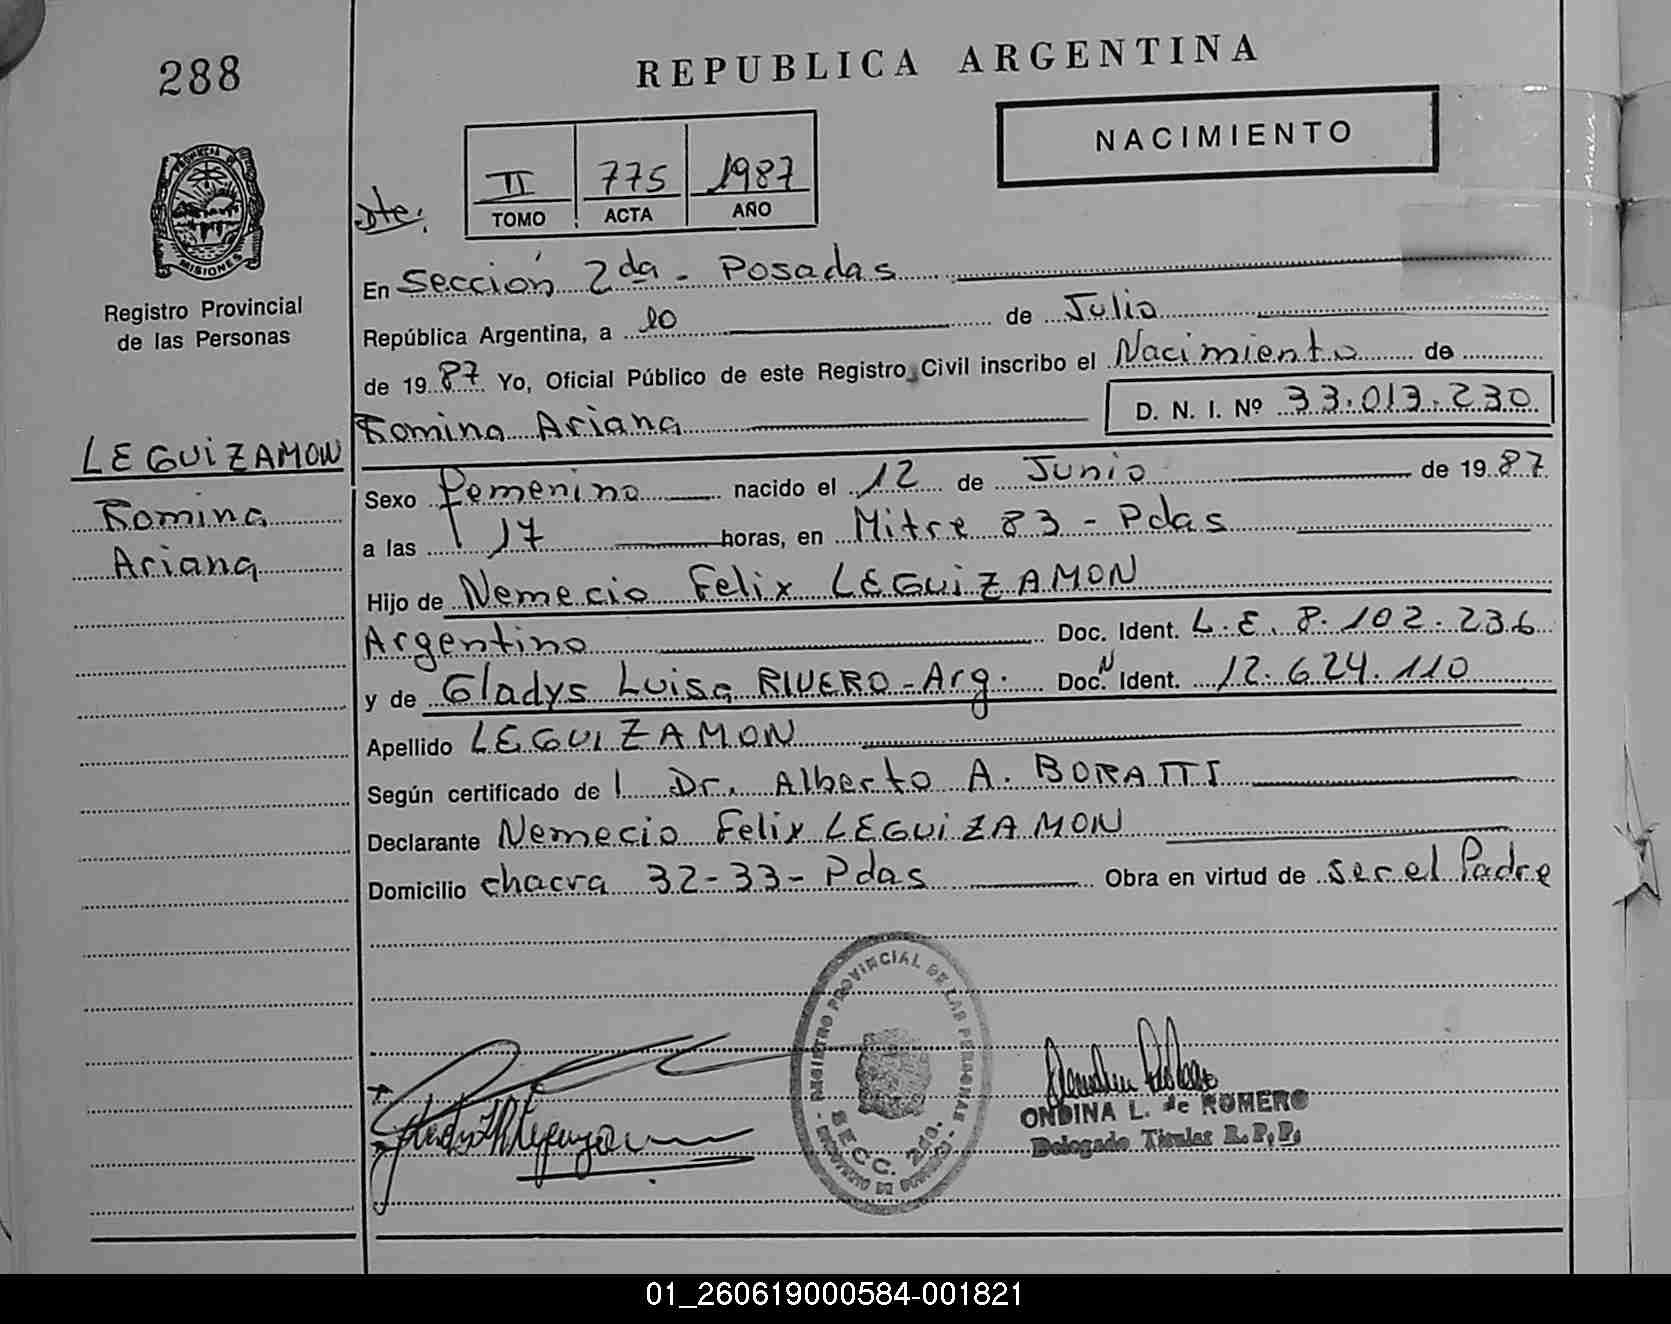 288
REPUBLICA ARGENTINA
NACIMIENTO
II 775 1987
TOMO ACTA AÑO
Dte:
PROVINCIA DE MISIONES
Registro Provincial
de las Personas
En Sección 2da - Posadas
República Argentina, a 10 de Julio
de 1987 Yo, Oficial Público de este Registro Civil inscribo el Nacimiento de
Romina Ariana D. N. I. Nº 33.013.230
LEGUiZAMON
Romina
Ariana
Sexo femenino nacido el 12 de Junio de 1987
a las 17 horas, en Mitre 83 - Pdas
Hijo de Nemecio Felix LEGUiZAMON
Argentino Doc. Ident. L.E. 8.102.236
y de Gladys Luisa RIVERO - Arg. Doc. N Ident. 12.624.110
Apellido LEGUIZAMON
Según certificado de l Dr. Alberto A. BORATTI
Declarante Nemecio Felix LEGUiZAMON
Domicilio chacra 32-33 - Pdas Obra en virtud de ser el Padre
REGISTRO PROVINCIAL DE LAS PERSONAS
SECC. 2da.
ONDINA L. de ROMERO
Delegado Titular R.P.P.
01_260619000584-001821